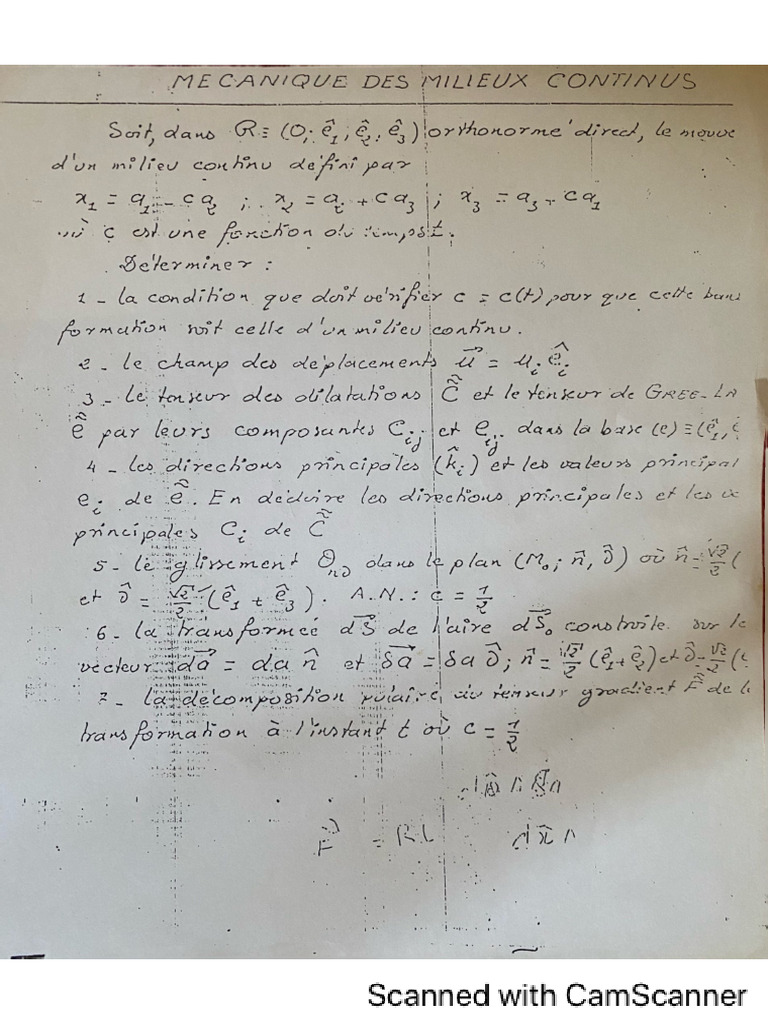 MECANIQUE DES MILIEUX CONTINUS
Soit, dans R ≡ (O; ê₁, ê₂, ê₃) orthonormé direct, le mouve
d'un milieu continu défini par
x₁ = a₁ - c a₂ ; x₂ = a₂ + c a₃ ; x₃ = a₃ + c a₁
où c est une fonction du temps t.
Déterminer :
1 - la condition que doit vérifier c = c(t) pour que cette
formation soit celle d'un milieu continu.
2 - le champ des déplacements u⃗ = uᵢ êᵢ
3 - le tenseur des dilatations C̃̃ et le tenseur de GREE-LA
ẽ̃ par leurs composantes Cᵢⱼ et eᵢⱼ dans la base (e) ≡ (ê₁,
4 - les directions principales (k̂ᵢ) et les valeurs principal
eᵢ de ẽ̃. En déduire les directions principales et les
principales Cᵢ de C̃̃
5 - le glissement dans le plan (M₀; n̂, υ̂) où n̂ = √2/2 (
et υ̂ = √2/2 (ê₁ + ê₃). A.N.: c = 1/2
6 - la transformée dS⃗ de l'aire dS⃗₀ construite sur le
vecteur da⃗ = da n̂ et δa⃗ = δa υ̂ ; n̂ = √2/2 (ê₁+ê₂) et υ̂ = √2/2 (
7 - la décomposition polaire du tenseur gradient F̃ de l
transformation à l'instant t où c = 1/2
F = R
Scanned with CamScanner